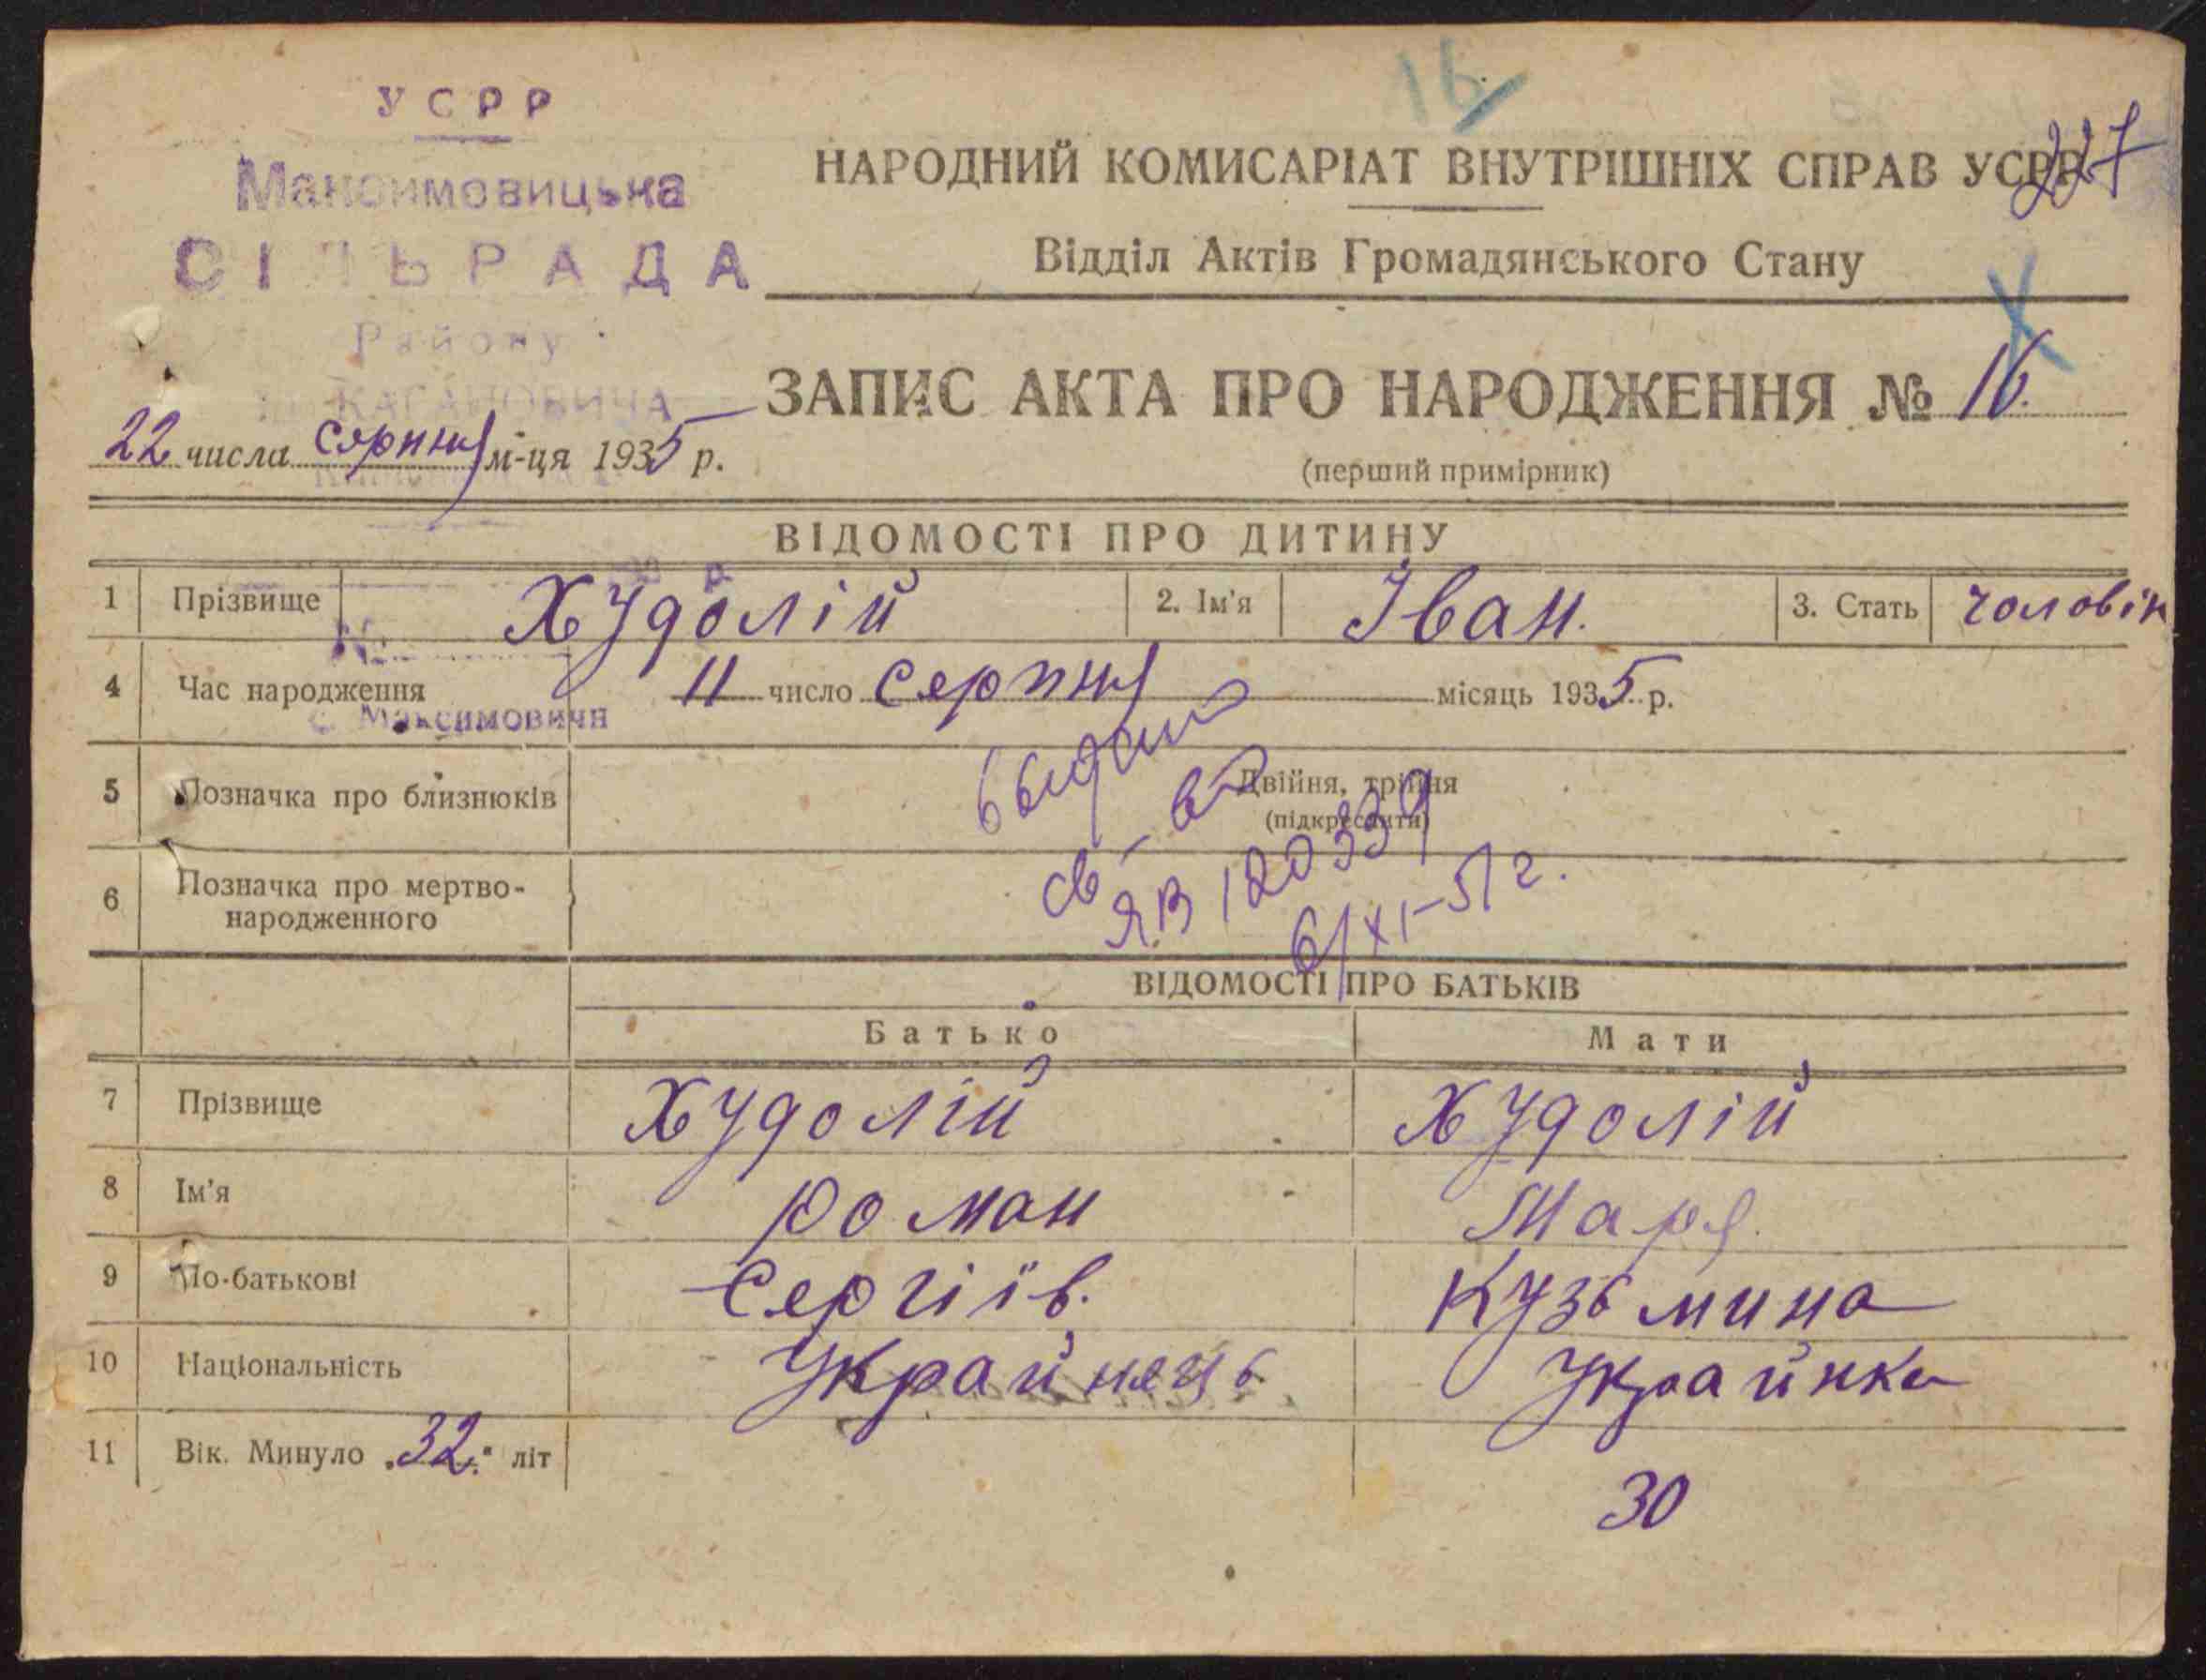 16
УСРР
Максимовицька
СІЛЬРАДА
Району
КАГАНОВИЧА
227
НАРОДНИЙ КОМИСАРІАТ ВНУТРІШНІХ СПРАВ УСРР
Відділ Актів Громадянського Стану
ЗАПИС АКТА ПРО НАРОДЖЕННЯ № 16.
22 числа серпня м-ця 1935 р.
(перший примірник)
ВІДОМОСТІ ПРО ДИТИНУ
1 Прізвище Худолій 2. Ім'я Іван. 3. Стать чоловік
№
4 Час народження 11 число серпня місяць 1935 р.
с. Максимовичи
5 Позначка про близнюків Двійня, трійня
(підкреслити)
выдано
св-во
ЯВ 120339
6/XI-51 г.
6 Позначка про мертво-
народженного
ВІДОМОСТІ ПРО БАТЬКІВ
Батько Мати
7 Прізвище Худолій Худолій
8 Ім'я Роман Маря
9 По-батькові Сергіїв. Кузьмина
10 Національність Украйнець Украйнка
11 Вік. Минуло „32" літ
30